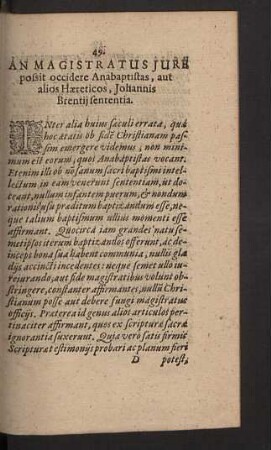 49.
AN MAGISTRATUS JURE
possit occidere Anabaptistas, aut
alios Hæreticos, Johannis
Brentij sententia.
INter alia huius sæculi errata, quæ
hoc ætatis ob fidē Christianam pas-
sim emergere videmus, non mini-
mum est eorum, quos Anabaptistas vocant.
Etenim illi ob nō sanum sacri baptismi intel-
lectum in eam venerunt sententiam, ut do-
ceant, nullum infantem puerum, & nondum
rationis usu præditum baptizandum esse, ne-
que talium baptismum ullius momenti esse
affirmant. Quocirca iam grandes natu se-
metipsos iterum baptizandos offerunt, ac de-
incept bona sua habent communia, nullis gla-
dijs accincti incedentes: neque semet ullo iu-
reiurando, aut fide magistratibus volunt ob-
stringere, constanter affirmantes, nullū Chri-
stianum posse aut debere fungi magistratus
officijs. Præterea id genus alios articulos per-
tinaciter affirmant, quos ex scripturæ sacræ
ignorantia suxerunt. Quia vero satis firmis
Scripturæ testimonijs probari ac planum fieri
D potest,